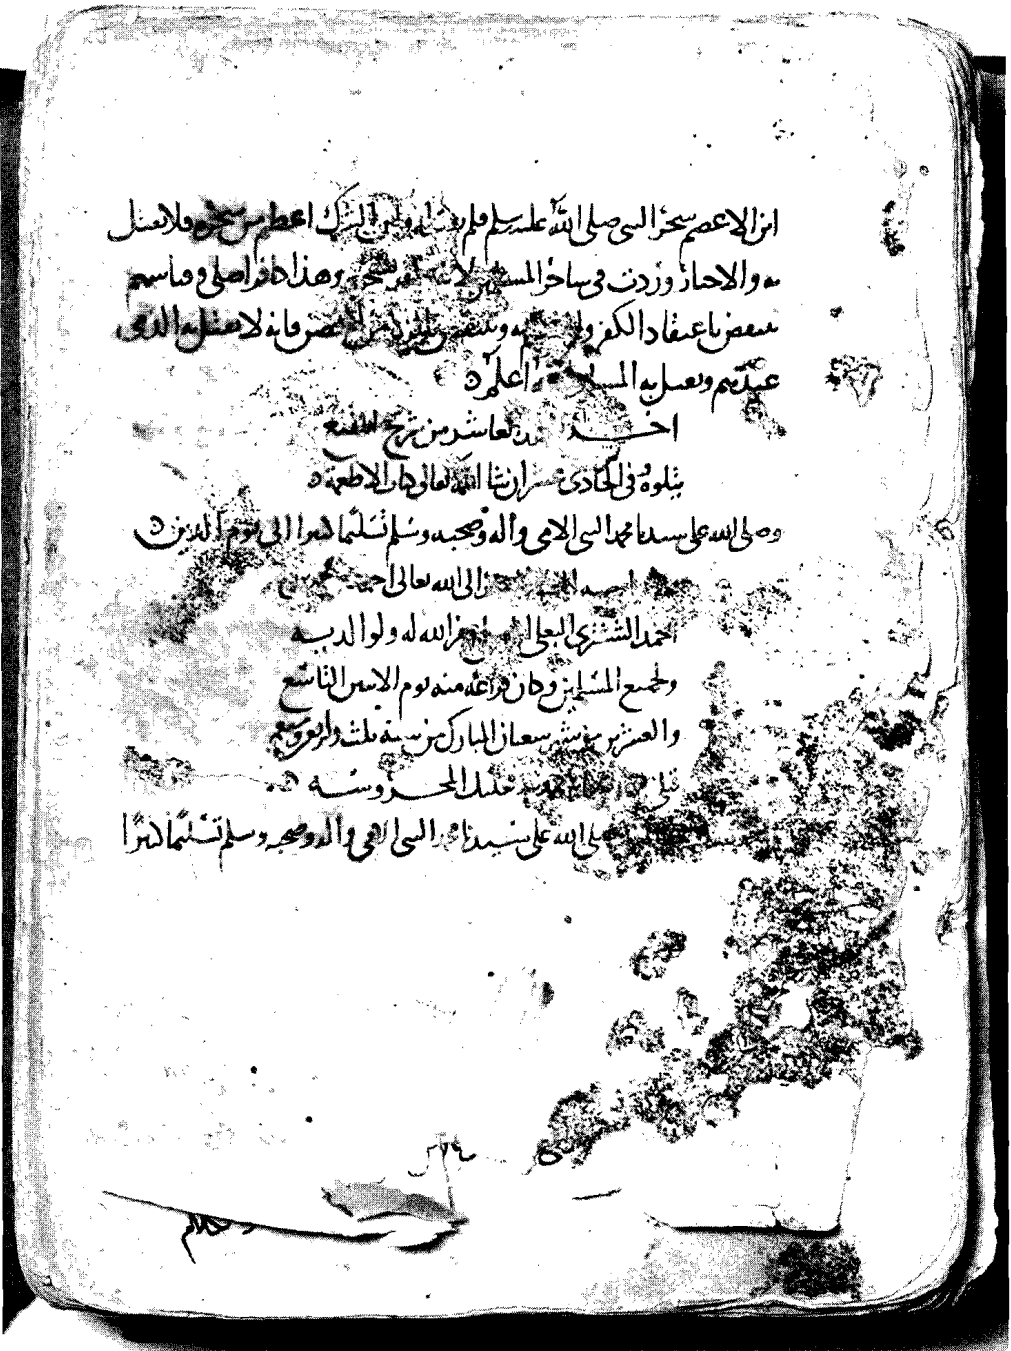 ابن الاعصم سحر النبي صلى الله عليه وسلم فلم يقتله ولان الشرك اعظم من سحره فلا يقتل
به والاخبار وردت في ساحر المسلمين لانه يكفر بسحره وهذا كافر اصلي وقياسهم
ينتقض باعتقاد الكفر والمتكلم به وينتقض بالزنا من المحصن فانه لا يقتل به الذمي
عندهم ويقتل به المسلم والله اعلم
اخر العاشر من شرح المقنع
يتلوه في الحادي عشر ان شا الله تعالى كتاب الاطعمة
وصلى الله على سيدنا محمد النبي الامي واله وصحبه وسلم تسليما كثيرا الى يوم الدين
الى الله تعالى احمد بن
احمد الشتري البعلي غفر الله له ولوالديه
ولجميع المسلمين وكان فراغه منه يوم الاثنين التاسع
والعشرين من شهر شعبان المبارك من سنة ثلث واربعين وسبع
المحروسة
صلى الله على سيدنا محمد النبي الامي واله وصحبه وسلم تسليما كثيرا